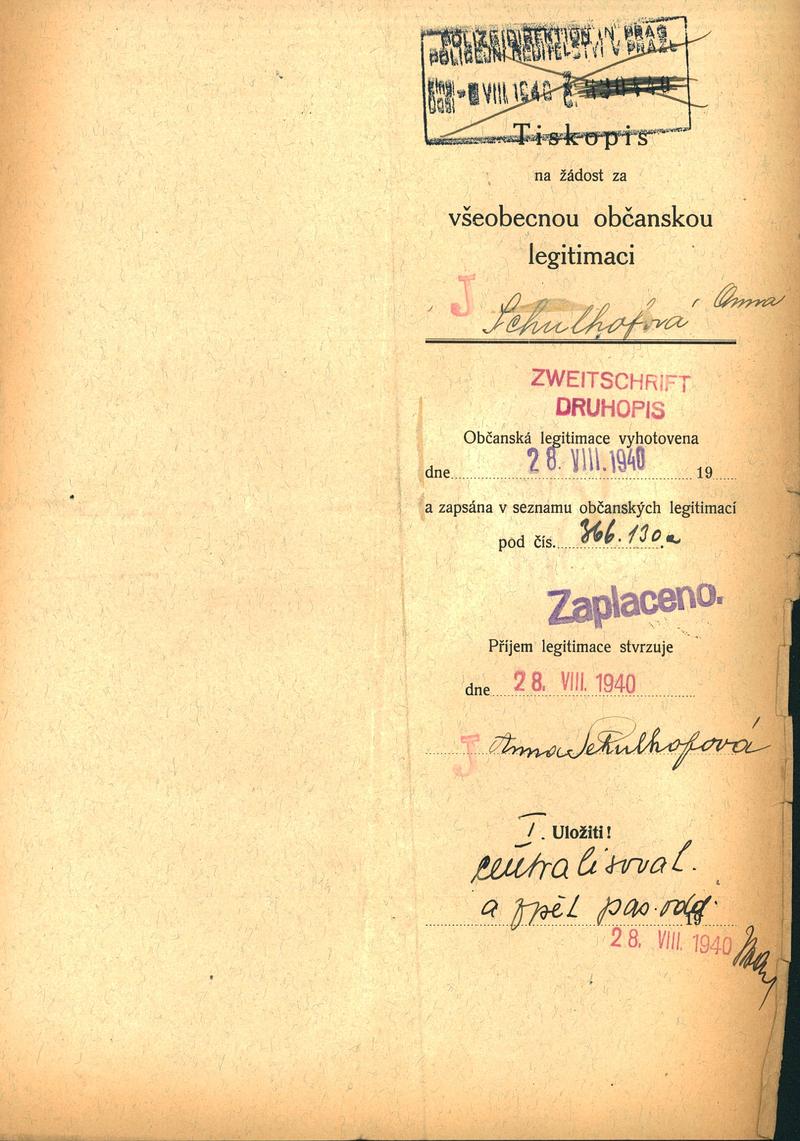 POLIZEIDIREKTION IN PRAG
POLICEJNÍ ŘEDITELSTVÍ V PRAZE
VIII. 1940
Tiskopis
na žádost za
všeobecnou občanskou
legitimaci
J Schulhofová Anna
ZWEITSCHRIFT
DRUHOPIS
Občanská legitimace vyhotovena
dne 28. VIII. 1940 19
a zapsána v seznamu občanských legitimací
pod čís. 366.130a
Zaplaceno.
Příjem legitimace stvrzuje
dne 28. VIII. 1940
J Anna Schulhofová
I. Uložiti!
centralisovat.
a zpět pas. odd.
19
28. VIII. 1940